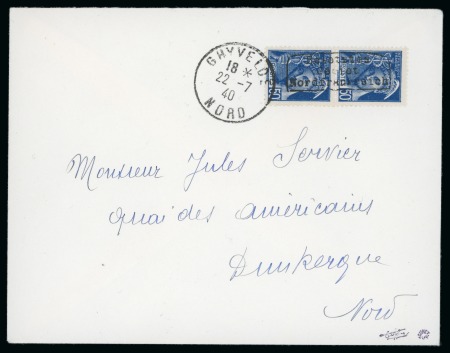 GHYVELDE
18 *
22 -7
40
NORD
50
50
Monsieur Jules Servier
Quai des américains
Dunkerque
Nord